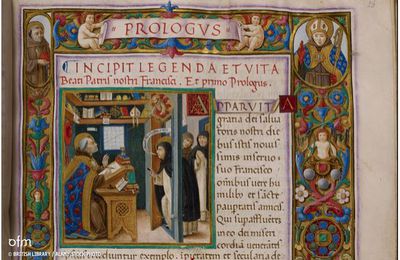 PROLOGVS
INCIPIT LEGENDA ET VITA
Beati Patris nostri Francisci. Et primo Prologus.
APPARVIT
gratia dei salva
toris nostri die
bus istis novis
simis in servo
suo Francisco
omnibus vere hu
milibus et sacre
paupertatis amicis.
Qui supaffluen
in eo dei miseri
cordiā venerātes
eruduntur exemplo
ofm
© BRITISH LIBRARY / ALAMY STOCK PHOTO